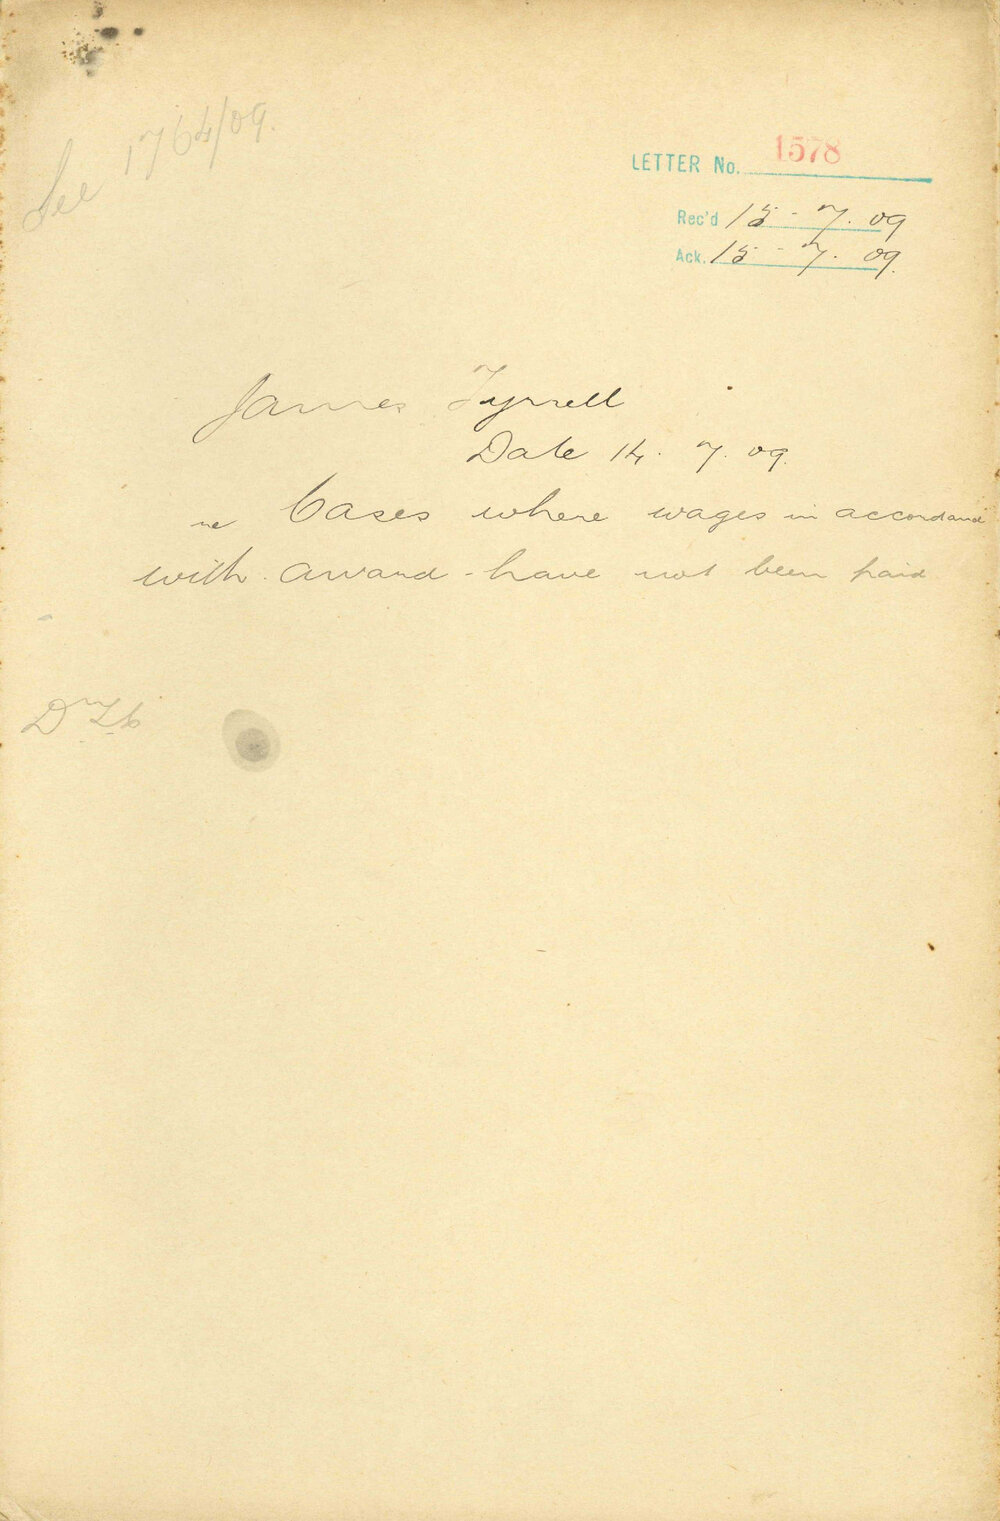 See 1764/09.
LETTER No. 1578
Rec'd 15 - 7. 09
Ack. 15 - 7. 09.
James Tyrrell
Date 14. 7. 09.
re Cases where wages in accordance
with award - have not been paid